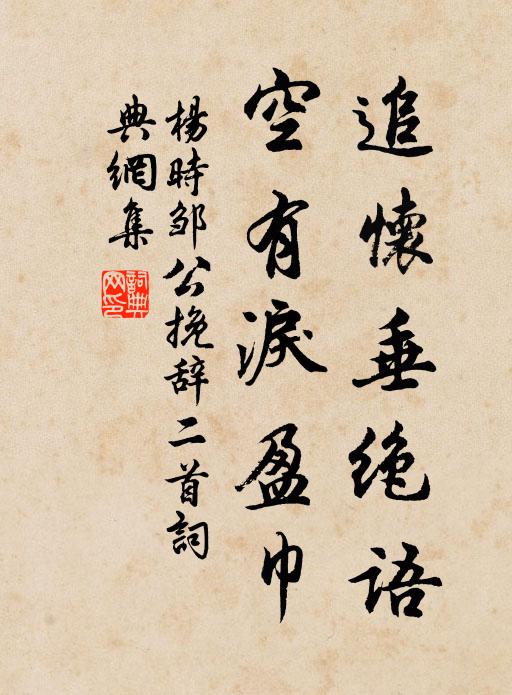 追懷垂绝語
空有淚盈巾
楊時邹公挽辞二首詞
典網集
詞典網印